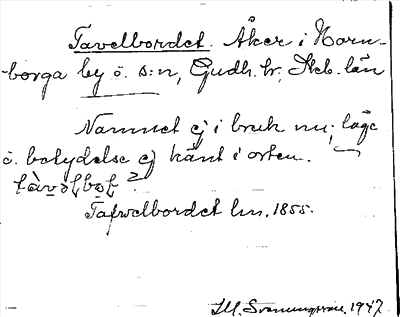 Tavelbordet. Åker i Horn-
borga by o. s:n, Gudh. hr, Skb. län
Namnet ej i bruk nu; läge
o. betydelse ej känt i orten.
Tafvelbordet lm. 1855.
1947